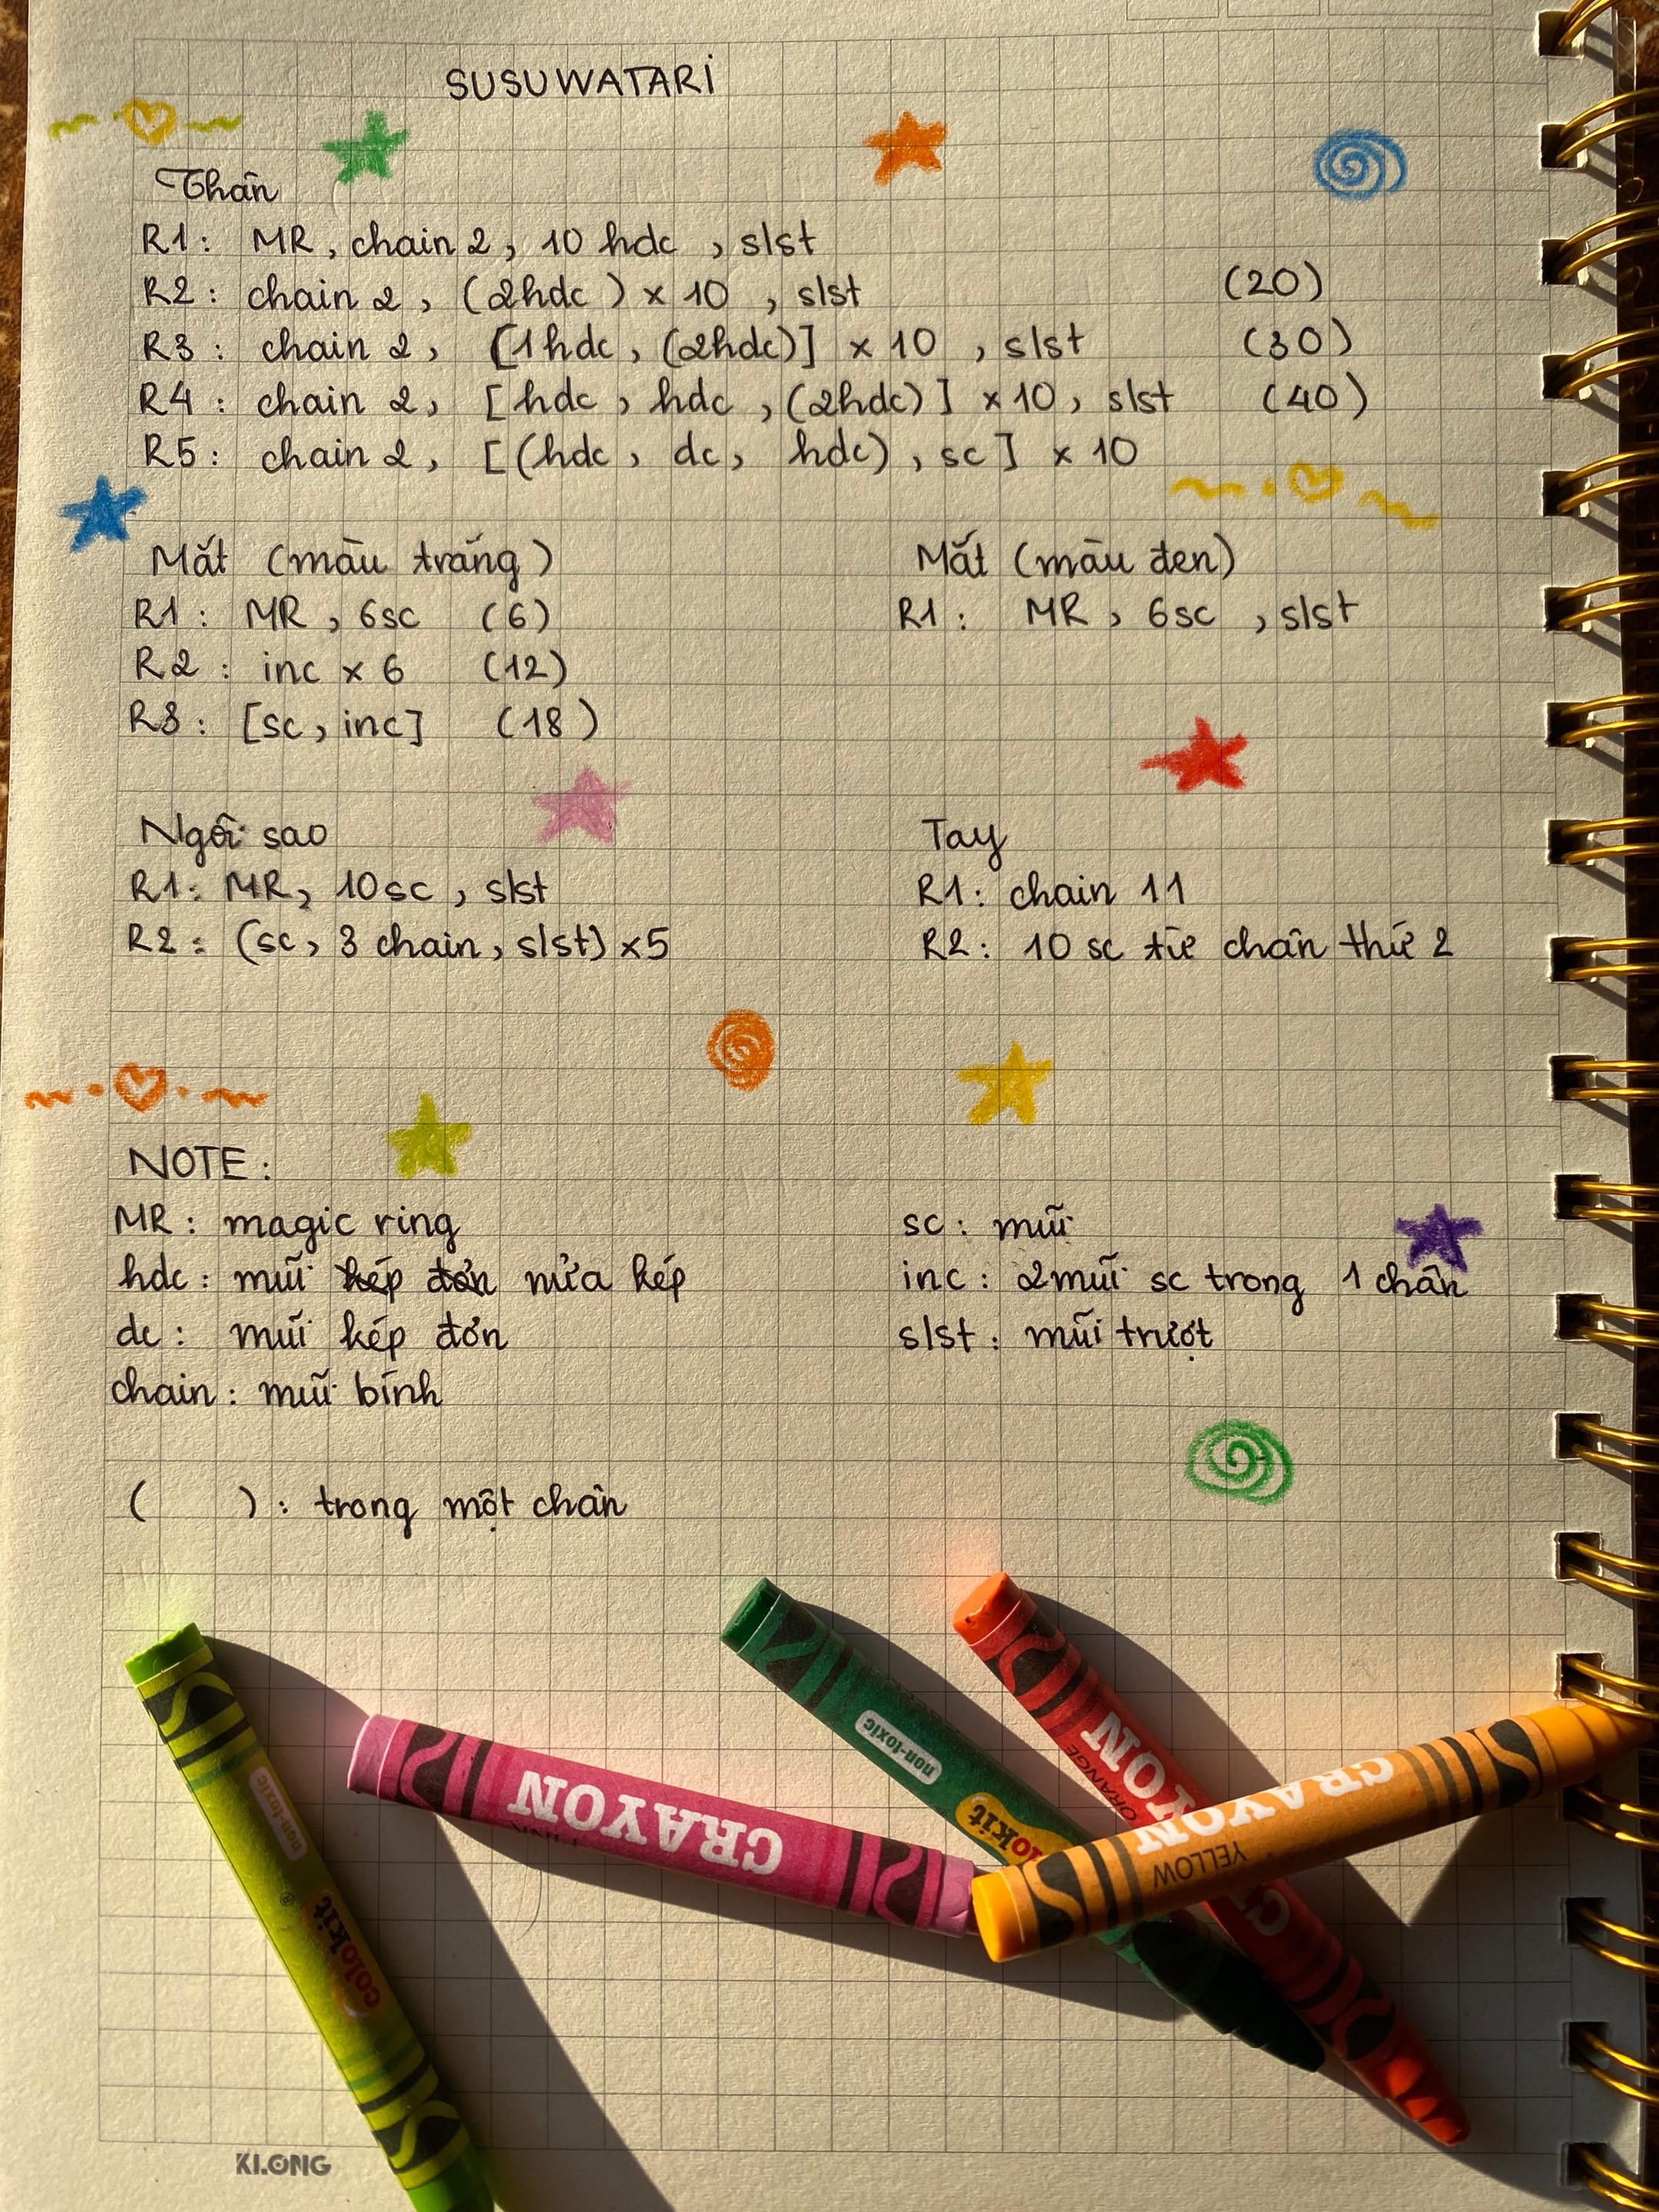 SUSUWATARI
Thân
R1: MR, chain 2, 10 hdc, slst
R2: chain 2, (2hdc) x 10, slst (20)
R3: chain 2, [1hdc, (2hdc)] x 10, slst (30)
R4: chain 2, [hdc, hdc, (2hdc)] x 10, slst (40)
R5: chain 2, [(hdc, dc, hdc), sc] x 10
Mắt (màu trắng)
R1: MR, 6sc (6)
R2: inc x 6 (12)
R3: [sc, inc] (18)
Mắt (màu đen)
R1: MR, 6sc, slst
Ngôi sao
R1: MR, 10sc, slst
R2: (sc, 3 chain, slst) x5
Tay
R1: chain 11
R2: 10 sc từ chân thứ 2
NOTE:
MR: magic ring
hdc: mũi kép đơn nửa kép
dc: mũi kép đơn
chain: mũi bính
sc: mũi
inc: 2 mũi sc trong 1 chân
slst: mũi trượt
( ): trong một chân
non-toxic
colokit
CRAYON
non-toxic
CRAYON
ORANGE
CRAYON
YELLOW
KLONG